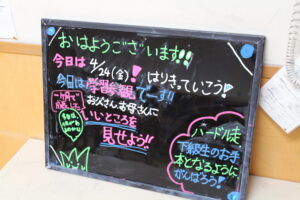 おはようございます!!
今日は4/24(金)!はりきっていこう
今日は学習参観でーす!!
お父さんお母さんに
いいところを
見せよう!!
ハードル走
下級生のお手
本となるように
がんばろう!